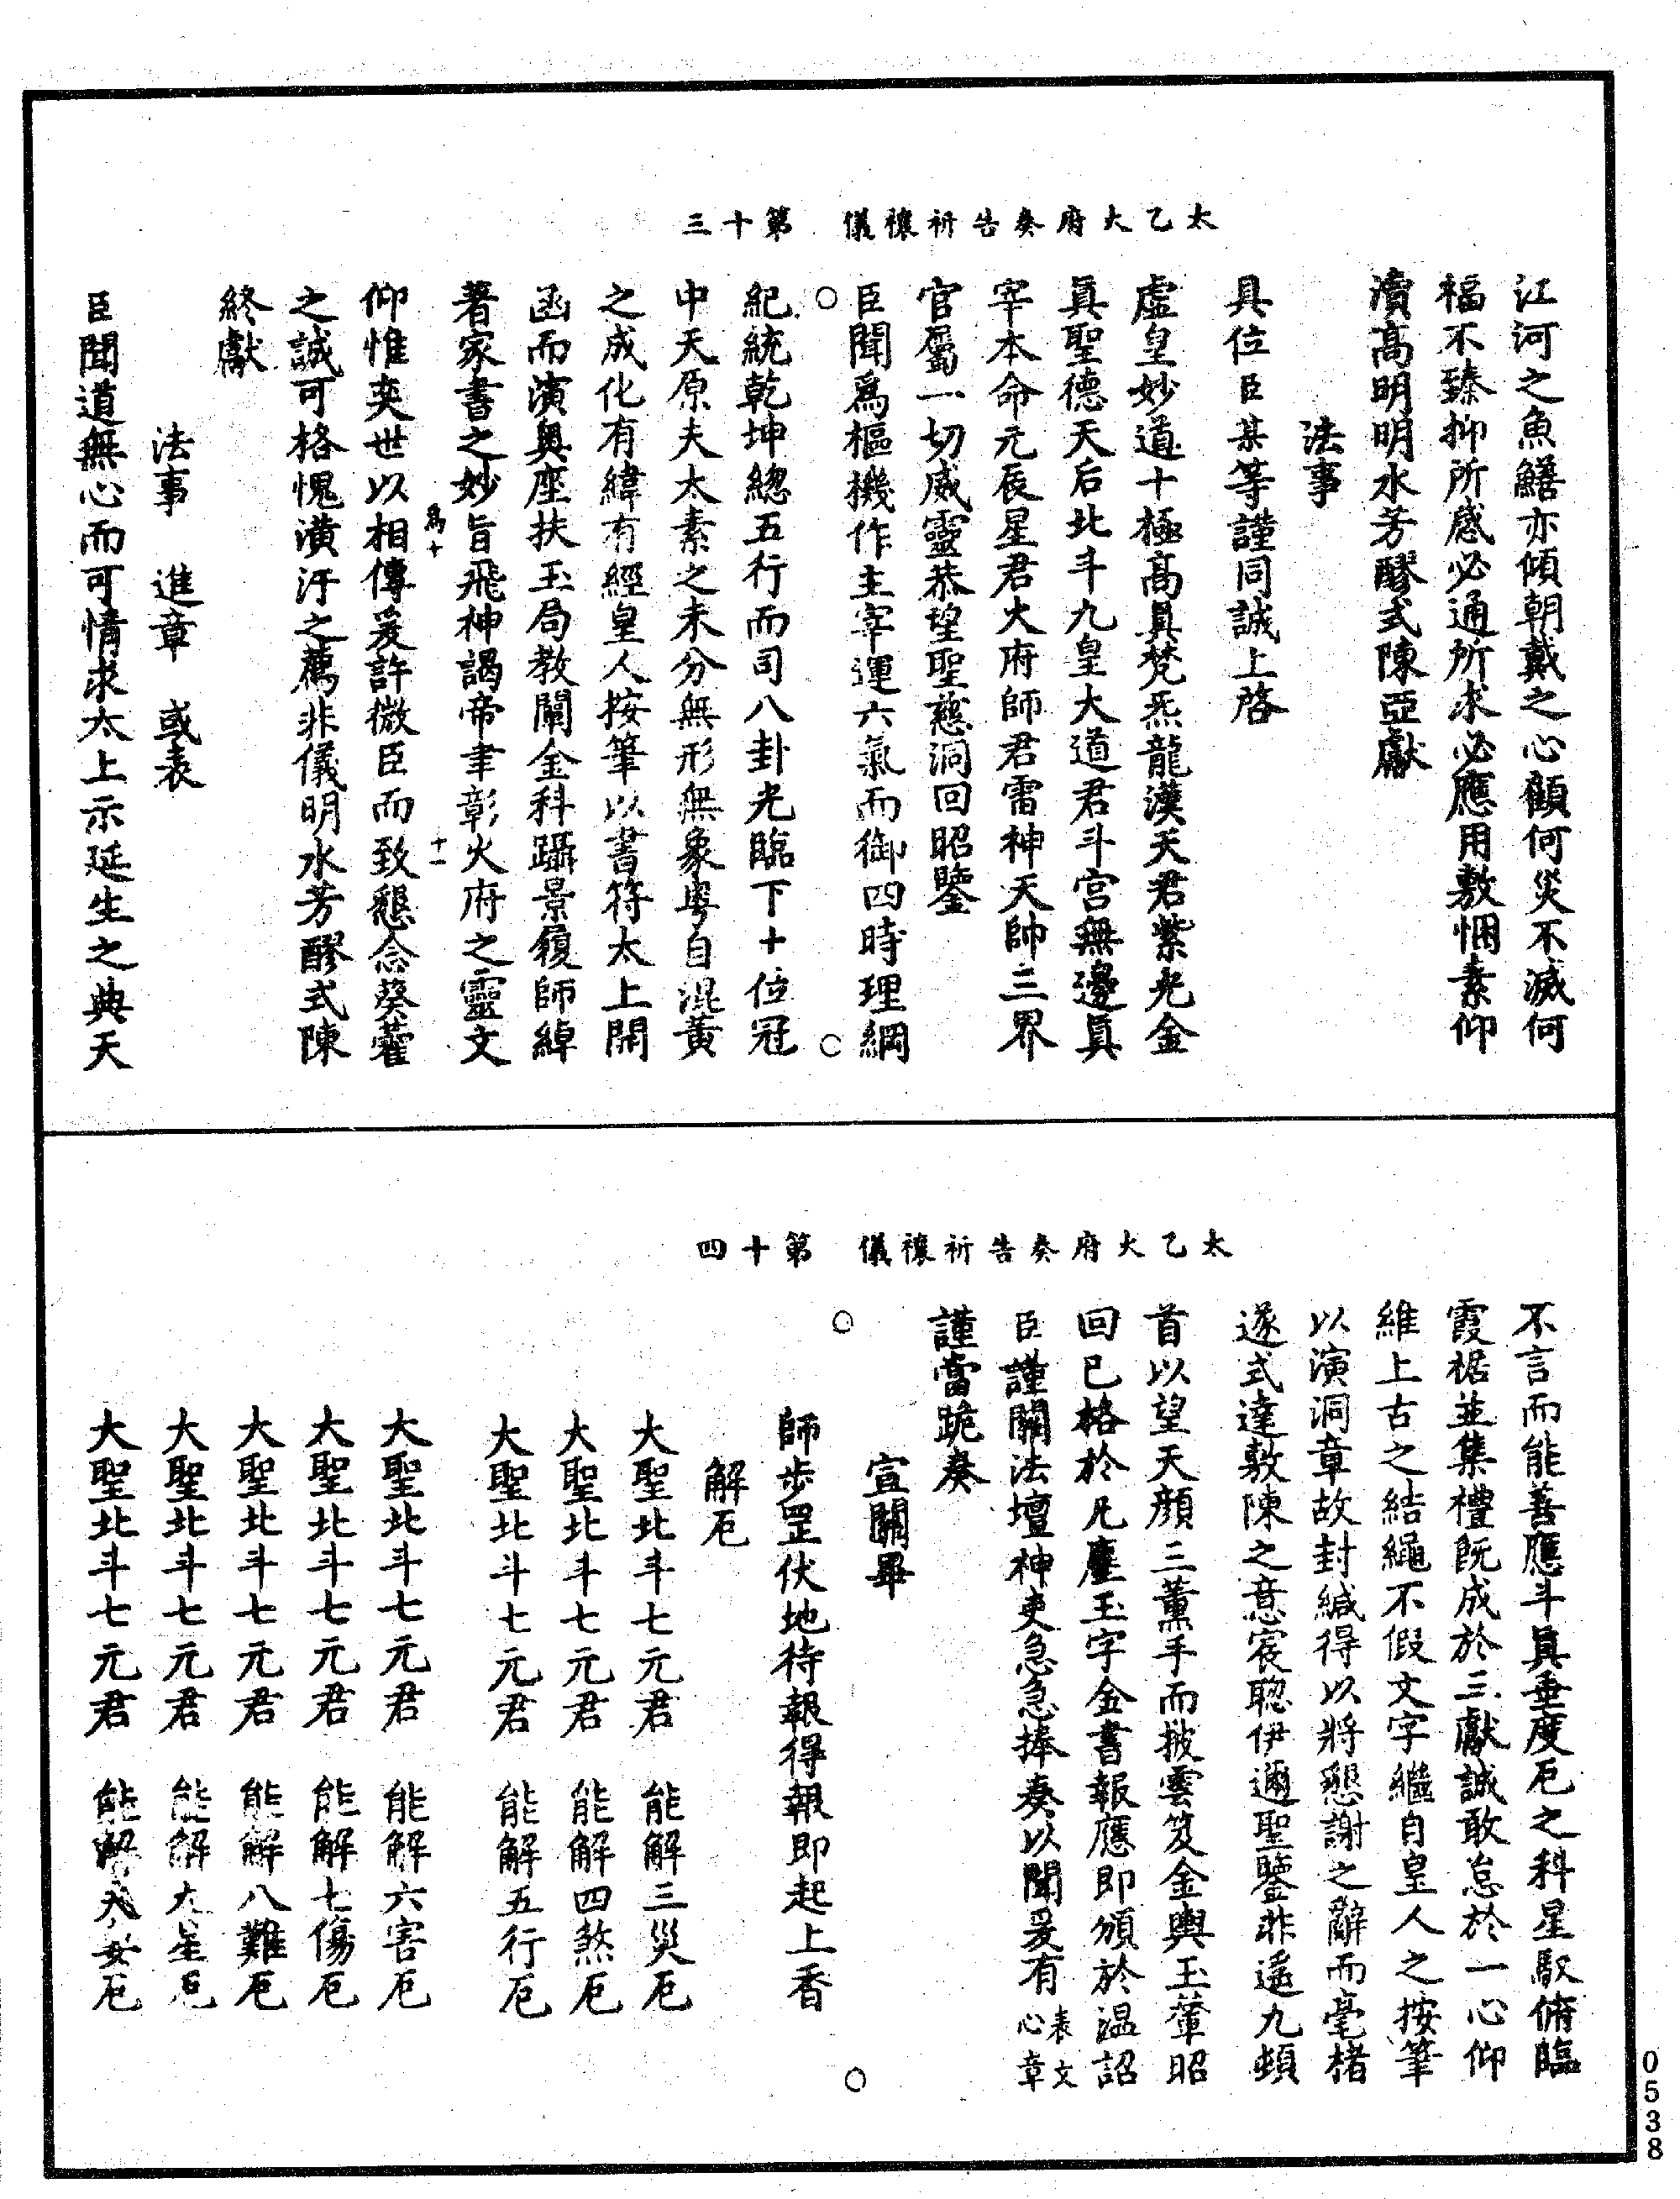 太乙火府奏告祈禳儀　第十三
江河之魚鱔亦傾朝戴之心顧何災不滅何
福不臻抑所感必通所求必應用敷悃素仰
瀆高明明水芳醪式陳亞獻
法事
具位臣某等謹同誠上啓
虛皇妙道十極高真梵炁龍漢天君紫光金
真聖德天后北斗九皇大道君斗宮無邊真
宰本命元辰星君火府師君雷神天帥三界
官屬一切威靈恭望聖慈洞回昭鑒
臣聞為樞機作主宰運六氣而御四時理綱
紀統乾坤總五行而司八卦光臨下土位冠
中天原夫太素之未分無形無象粵自混黃
之成化有緯有經皇人按筆以書符太上開
函而演奧座扶玉局教闡金科躡景履師綽
著家書之妙旨飛神謁帝聿彰火府之靈文
為十　十一
仰惟奕世以相傳爰許微臣而致懇念葵藿
之誠可格愧潢汙之薦非儀明水芳醪式陳
終獻
法事　進章　或表
臣聞道無心而可情求太上示延生之典天
太乙火府奏告祈禳儀　第十四
不言而能善應斗真垂度厄之科星馭俯臨
霞裾並集禮既成於三獻誠敢怠於一心仰
維上古之結繩不假文字繼自皇人之按筆
以演洞章故封緘得以將懇謝之辭而毫楮
遂式達敷陳之意宸聰伊邇聖鑒非遙九頓
首以望天顏三薰手而披雲笈金輿玉輦昭
回已格於凡塵玉字金書報應即頒於溫詔
臣謹關法壇神吏急急捧奏以聞爰有表文心章
謹當跪奏
宣關畢
師步罡伏地待報得報即起上香
解厄
大聖北斗七元君　能解三災厄
大聖北斗七元君　能解四煞厄
大聖北斗七元君　能解五行厄
大聖北斗七元君　能解六害厄
大聖北斗七元君　能解七傷厄
大聖北斗七元君　能解八難厄
大聖北斗七元君　能解九星厄
大聖北斗七元君　能解夫妻厄
0538